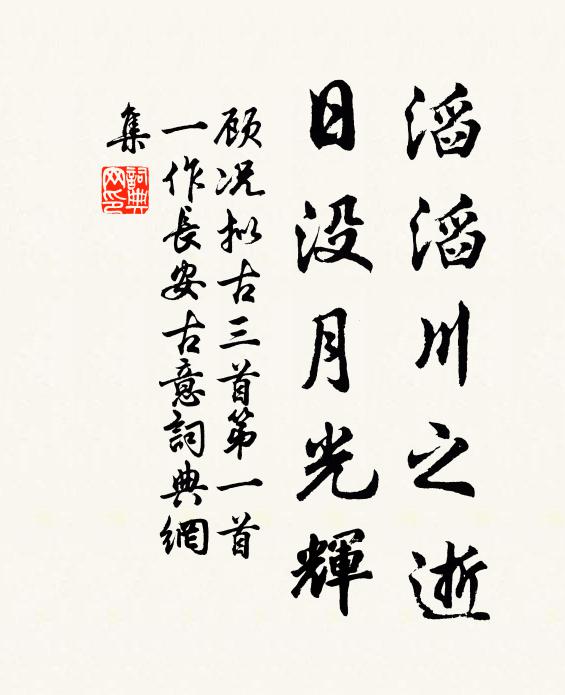 滔滔川之逝
日没月光輝
顾况拟古三首第一首
一作長安古意詞典網
集
詞典
网印